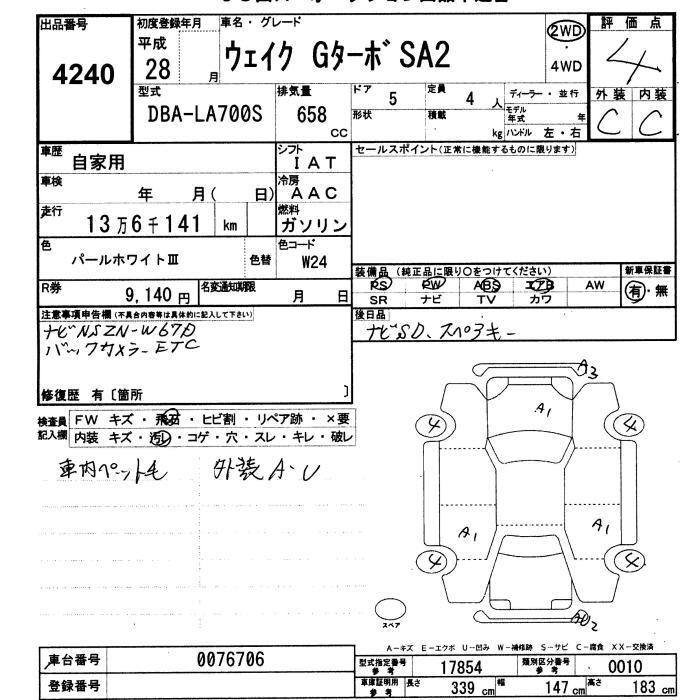 出品番号
4240
初度登録年月
平成
28 月
車名・グレード
ウェイク GターボSA2
2WD
・
4WD
評価点
4
外装 内装
C C
型式
DBA-LA700S
排気量
658
CC
ドア 5
定員 4 人
形状
積載 kg
ディーラー・並行
モデル年式 年
ハンドル 左・右
車歴
自家用
シフト
IAT
車検
年 月( 日)
冷房
AAC
走行
13万6千141 km
燃料
ガソリン
色
パールホワイトⅢ
色替
色コード
W24
R券
9,140円
名変通知期限
月 日
セールスポイント(正常に機能するものに限ります)
装備品(純正品に限り○をつけてください)
PS PW ABS エアB AW
SR ナビ TV カワ
新車保証書
有・無
後日品
ナビSD、スペアキー
注意事項申告欄(不具合内容等は具体的に記入して下さい)
ナビNSZN-W67D
バックカメラ- ETC
修復歴 有〔箇所 〕
検査員記入欄
FW キズ・飛石・ヒビ割・リペア跡・×要
内装 キズ・汚レ・コゲ・穴・スレ・キレ・破レ
車内ペット毛 外装A・U
A3
A1
4 4
A1 A1
4 4
スペア
AU2
A-キズ E-エクボ U-凹み W-補修跡 S-サビ C-腐食 XX-交換済
車台番号
0076706
登録番号
型式指定番号
参考
17854
類別区分番号
参考
0010
車庫証明用
参考
長さ 339 cm
幅 147 cm
高さ 183 cm